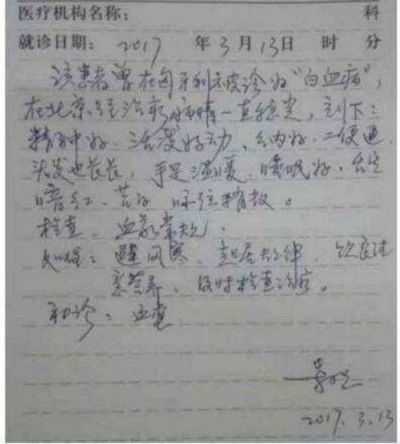 医疗机构名称: 科
就诊日期: 2017 年 3 月 13 日 时 分
该患者曾在匈牙利被诊为"白血病",
在北京经治疗病情一直稳定,刻下:
精神好、活泼好动、纳好、二便通
头发也长长,手足温暖、睡眠好、
暗红、苔白、脉弦稍数。
检查:血象常规。
处理:避风寒、起居规律、饮食注
营养、及时检查治疗。
初诊:血虚
2017.3.13